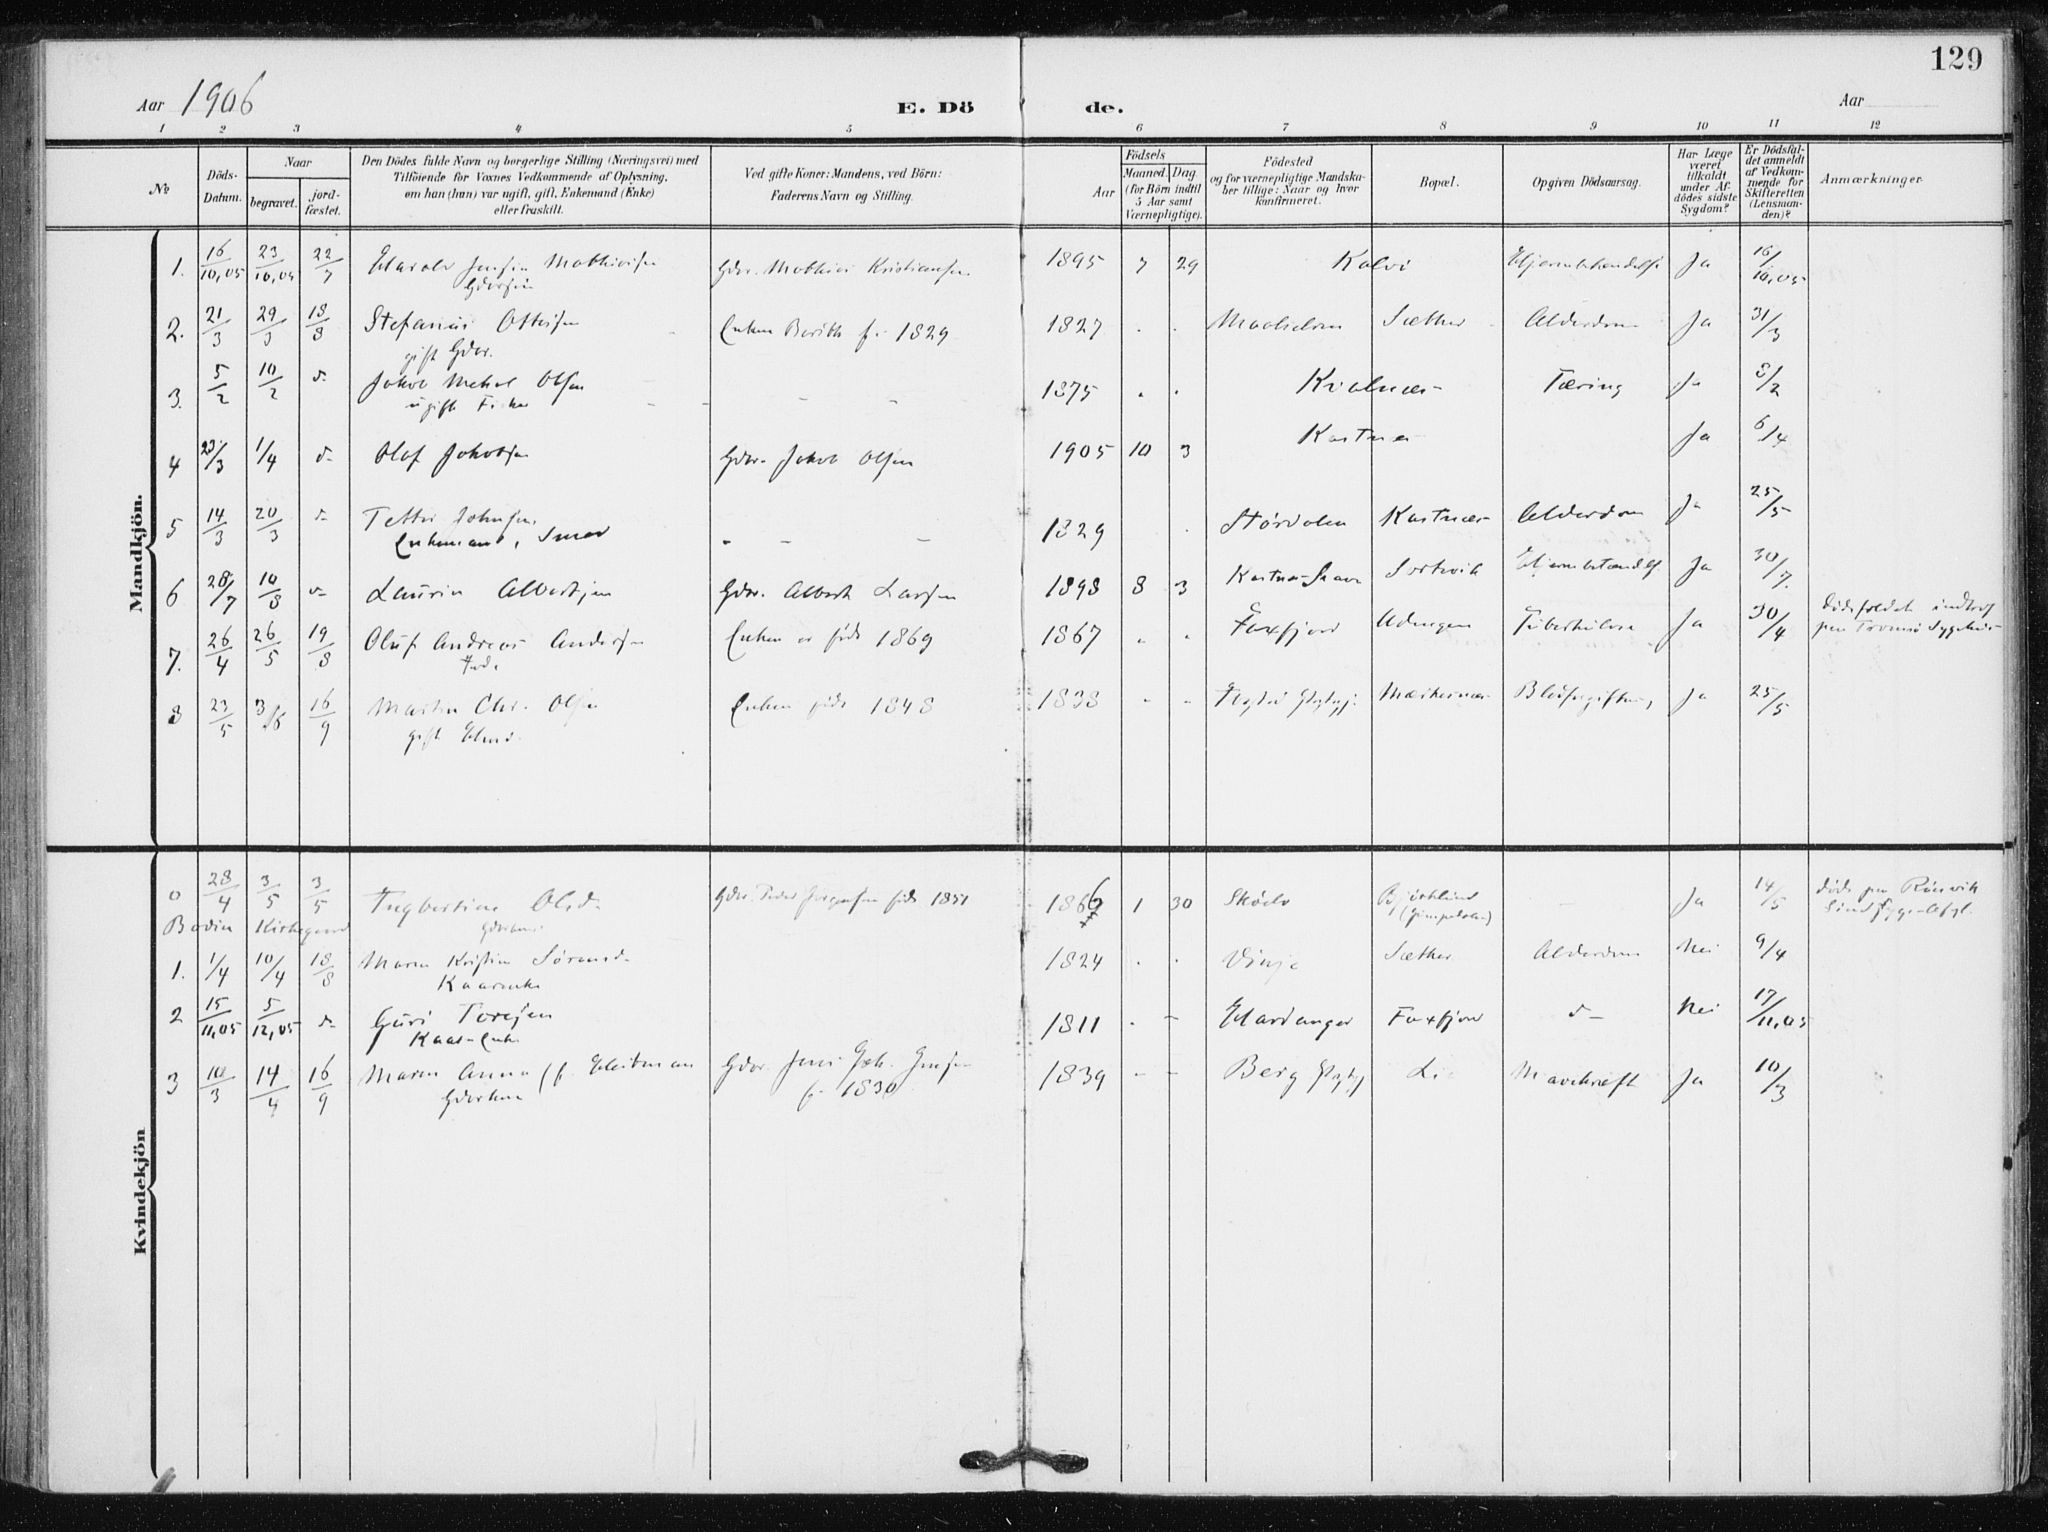 129
Aar 1906 E. Dö de. Aar
1 2 3 4 5 6 7 8 9 10 11 12
No
Döds-Datum.
Naar
begravet.
jord-fæstet.
Den Dödes fulde Navn og borgerlige Stilling (Næringsvei) med
Tilföiende for Voxnes Vedkommende af Oplysning,
om han (hun) var ugift, gift, Enkemand (Enke)
eller fraskilt.
Ved gifte Koner: Mandens, ved Börn:
Faderens Navn og Stilling.
Födsels
Aar
Maaned. Dag
(for Börn indtil
5 Aar samt
Værnepligtige).
Födested
og for værnepligtige Mandska-
ber tillige: Naar og hvor
konfirmeret.
Bopæl.
Opgiven Dödsaarsag.
Har Læge
været
tilkaldt
under Af-
dödes sidste
Sygdom?
Er Dödsfal-
det anmeldt
af Vedkom-
mende for
Skifteretten
(Lensman-
den)?
Anmærkninger.
Mandkjön.
1. 16/10,05 23/10,05 22/7 Harald Jensen Mathisen Gdbr. Mathias Kristiansen 1895 7 29 Kalvö Ja 16/10,05
2. 21/3 29/3 18/8 Stefanus Ottesen Enken Berith f. 1829 1827 - - Maalselven Sæther Alderdom Ja 31/3
gift Gdbr.
3. 5/2 10/2 d- Jakob Mekal Olsen - - - - 1875 - - Kvalnæs Tæring Ja 8/2
ugift Fisker
4 23/3 1/4 d- Olaf Jakobsen Gdbr. Jakob Olsen 1905 10 3 Kastnes Ja 6/4
5 14/3 20/3 d- Johnsen - - - 1829 - Stördalen Kastnæs Alderdom Ja 25/5
Enkemand, Smed
6 28/7 10/8 d- Laurin Albertsen Gdbr. Albert Larsen 1898 8 3 Ja 30/7.
7. 26/4 26/5 19/8 Oluf Andreas Andersen Enken er föds 1869 1867 - - Faxfjord Tuberkulose Ja 30/4 Dödsfaldet indtraf
paa Tromsö Sygehus
8 23/5 3/6 16/9 Martin Chr. Olsen Enken föds 1848 1838 - - Blodforgiftning Ja 25/5
gift
Kvindekjön
0 28/4 3/5 3/5 Ingbertine Olsd. Gdbr. Peder Jörgensen föds 1851 1866 1 30 Björklund - - Ja 14/5 död paa Rönvik
Bodin Kirkegaard Sindssyge-Asyl.
1. 1/4 10/4 18/8 Maren Kristine Sörensd. 1824 - - Vinje Sæther Alderdom Nei 9/4
Kaarenke
2 15/11,05 5/12,05 d- Guri Toresen 1811 - - Hardanger Faxfjord d- Nei 17/11,05
Kaar-Enke
3 10/3 14/4 16/9 Maren Anna (f. Heitman Gdbr. Jens Jensen 1839 - - Berg Li Mavekræft Ja 10/3
f. 1830